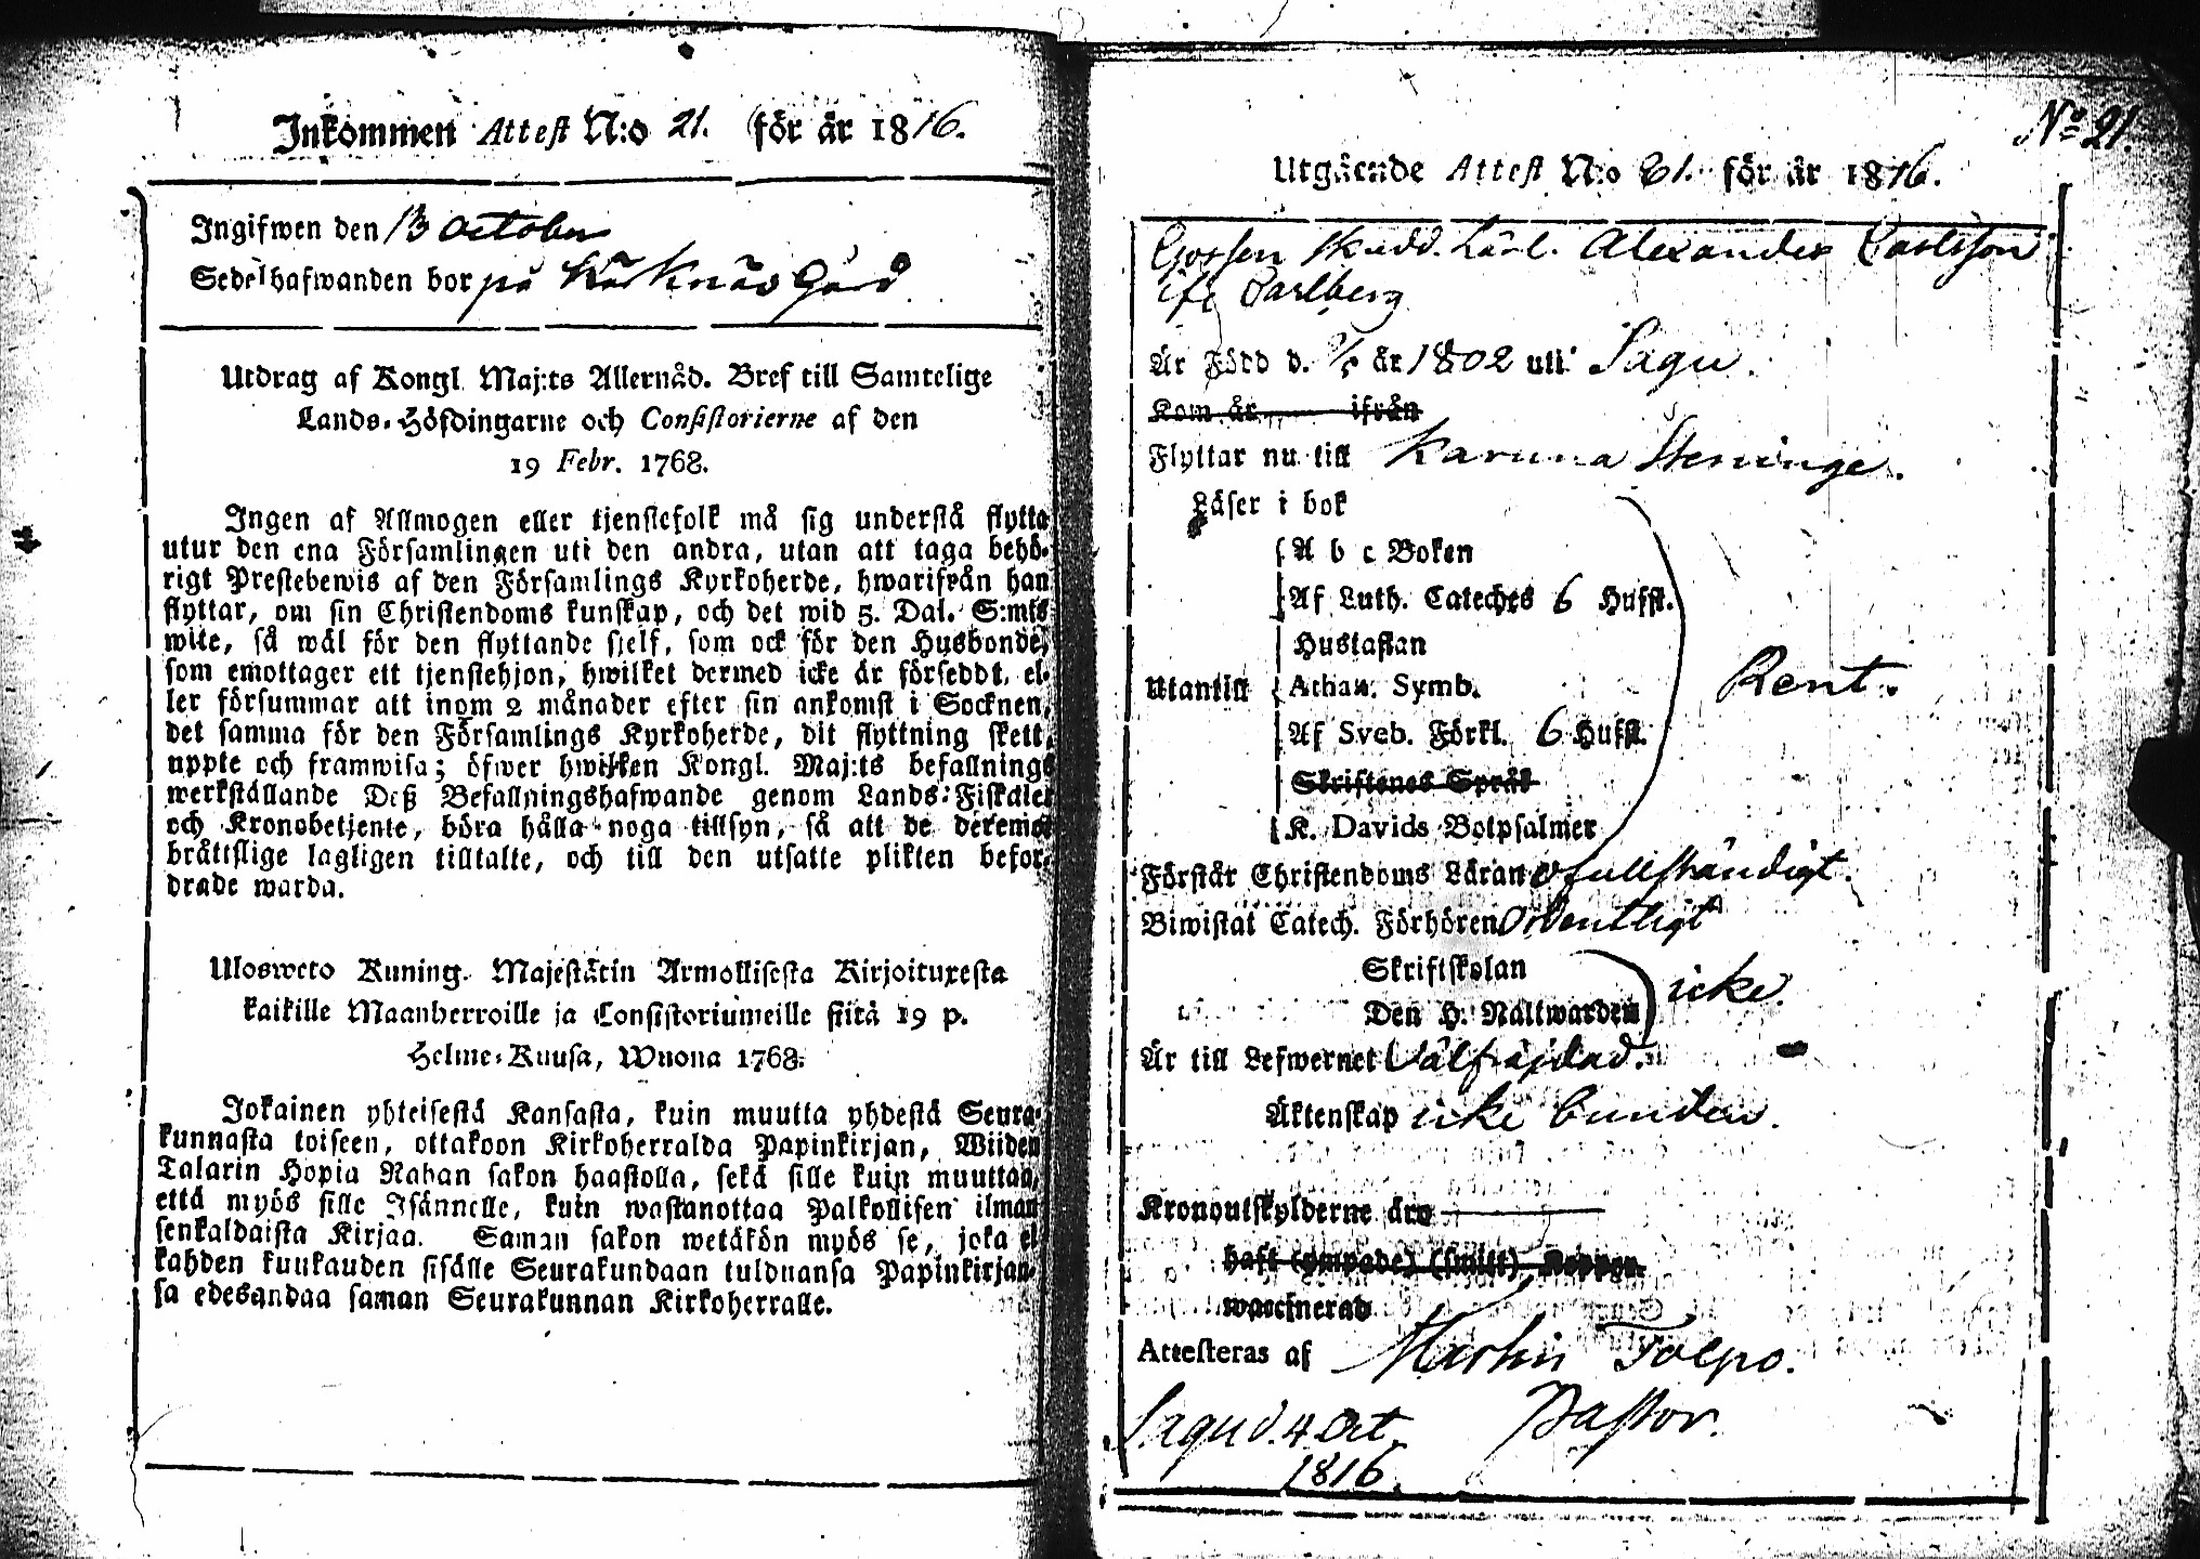 Inkommen Attest N:o 21. för år 1816.
Ingifwen den 13 October
Sedelhafwanden bor på Kärknäs Gård
Utdrag af Kongl. Maj:ts Allernåd. Bref till Samtelige
Lands-Höfdingarne och Consistorierne af den
19 Febr. 1768.
Ingen af Allmogen eller tjenstefolk må sig understå flytta
utur den ena Församlingen uti den andra, utan att taga behö-
rigt Prestebewis af den Församlings Kyrkoherde, hwarifrån han
flyttar, om sin Christendoms kunskap, och det wid 5. Dal. S:mts
wite, så wäl för den flyttande sjelf, som ock för den Husbonde,
som emottager ett tjenstehjon, hwilket dermed icke är försedt, el-
ler försummar att inom 2 månader efter sin ankomst i Socknen,
det samma för den Församlings Kyrkoherde, dit flyttning skett,
uppte och framwisa; öfwer hwilken Kongl. Maj:ts befallnings
werkställande Deß Befallningshafwande genom Lands-Fiskaler
och Kronobetjente, böra hålla noga tillsyn, så att de deremot
bråttslige lagligen tilltalte, och till den utsatte plikten befor-
drade warda.
Ulosweto Kuning. Majestätin Armollisesta Kirjoituxesta
kaikille Maanherroille ja Consistoriumeille siitä 19 p.
Helme-Kuusa, Wuona 1768.
Jokainen yhteisestä Kansasta, kuin muutta yhdestä Seura-
kunnasta toiseen, ottakoon Kirkoherralda Papinkirjan, Wiiden
Talarin Hopia Rahan sakon haastolla, sekä sille kuin muuttaa,
että myös sille Isännelle, kuin wastanottaa Palkollisen ilman
senkaldaista Kirjaa. Saman sakon wetäkön myös se, joka ei
kahden kuukauden sisälle Seurakundaan tulduansa Papinkirjan-
sa edesandaa saman Seurakunnan Kirkoherralle.
No 21.
Utgående Attest N:o 21. för år 1816.
Gossen Skudd. Lärl. Alexander Carlsson
Carlberg
Är Född d. år 1802 uti Sagu.
Kom år ifrån
Flyttar nu till Karuna Steninge.
Läser i bok
A b c Boken
Af Luth. Cateches 6 Hufst.
Hustaflan
Utantill Athan. Symb. Rent.
Af Sveb. Förkl. 6 Hufst.
Skriftenes Språk
K. Davids Botpsalmer
Förstår Christendoms Läran ofullständigt.
Biwistat Catech. Förhören Ordentligt
Skriftskolan
Den H. Nattwarden icke.
Är till Lefwernet Välfräjdad.
Äktenskap icke bunden.
Kronoutskylderne äro
haft (ympade) (smitt) Koppor
waccinerad
Attesteras af Martin Tolpo.
Sagu d. 4 Oct. Pastor.
1816.